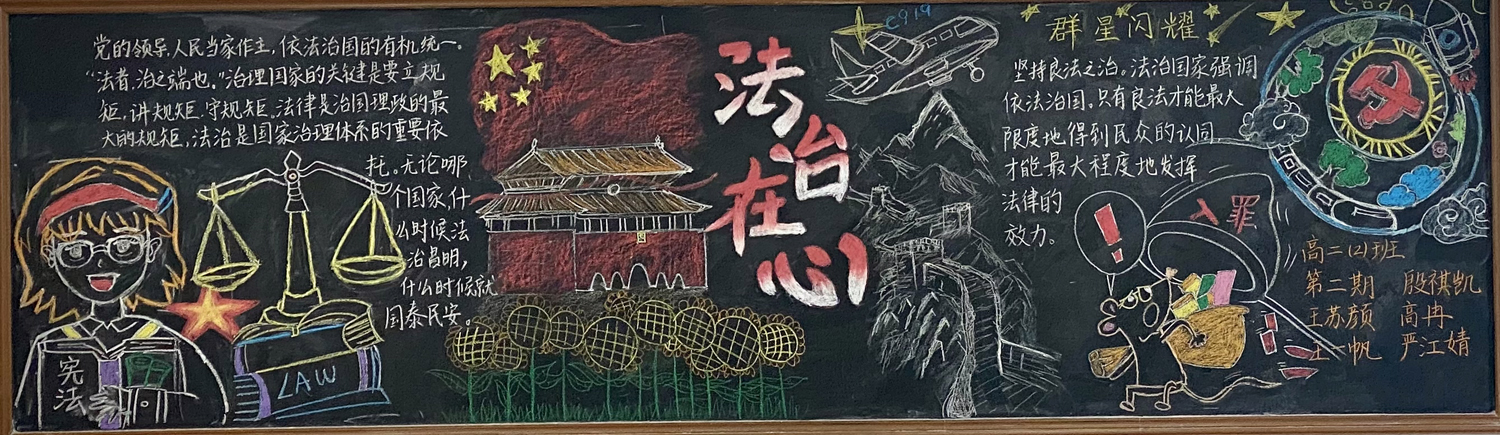 党的领导,人民当家作主,依法治国的有机统一。
“法者,治之端也。”治理国家的关键是要立规
矩,讲规矩,守规矩,法律是治国理政的最
大的规矩,法治是国家治理体系的重要依
托。无论哪
个国家,什
么时候法
治昌明,
什么时候就
国泰民安。
宪
法
LAW
法
治
在
心
C919
群星闪耀
坚持良法之治。法治国家强调
依法治国。只有良法才能最大
限度地得到民众的认同
才能最大程度地发挥
法律的
效力。
!
入罪
高二(2)班
第二期 殷祺凯
王苏颜 高冉
王一帆 严江婧